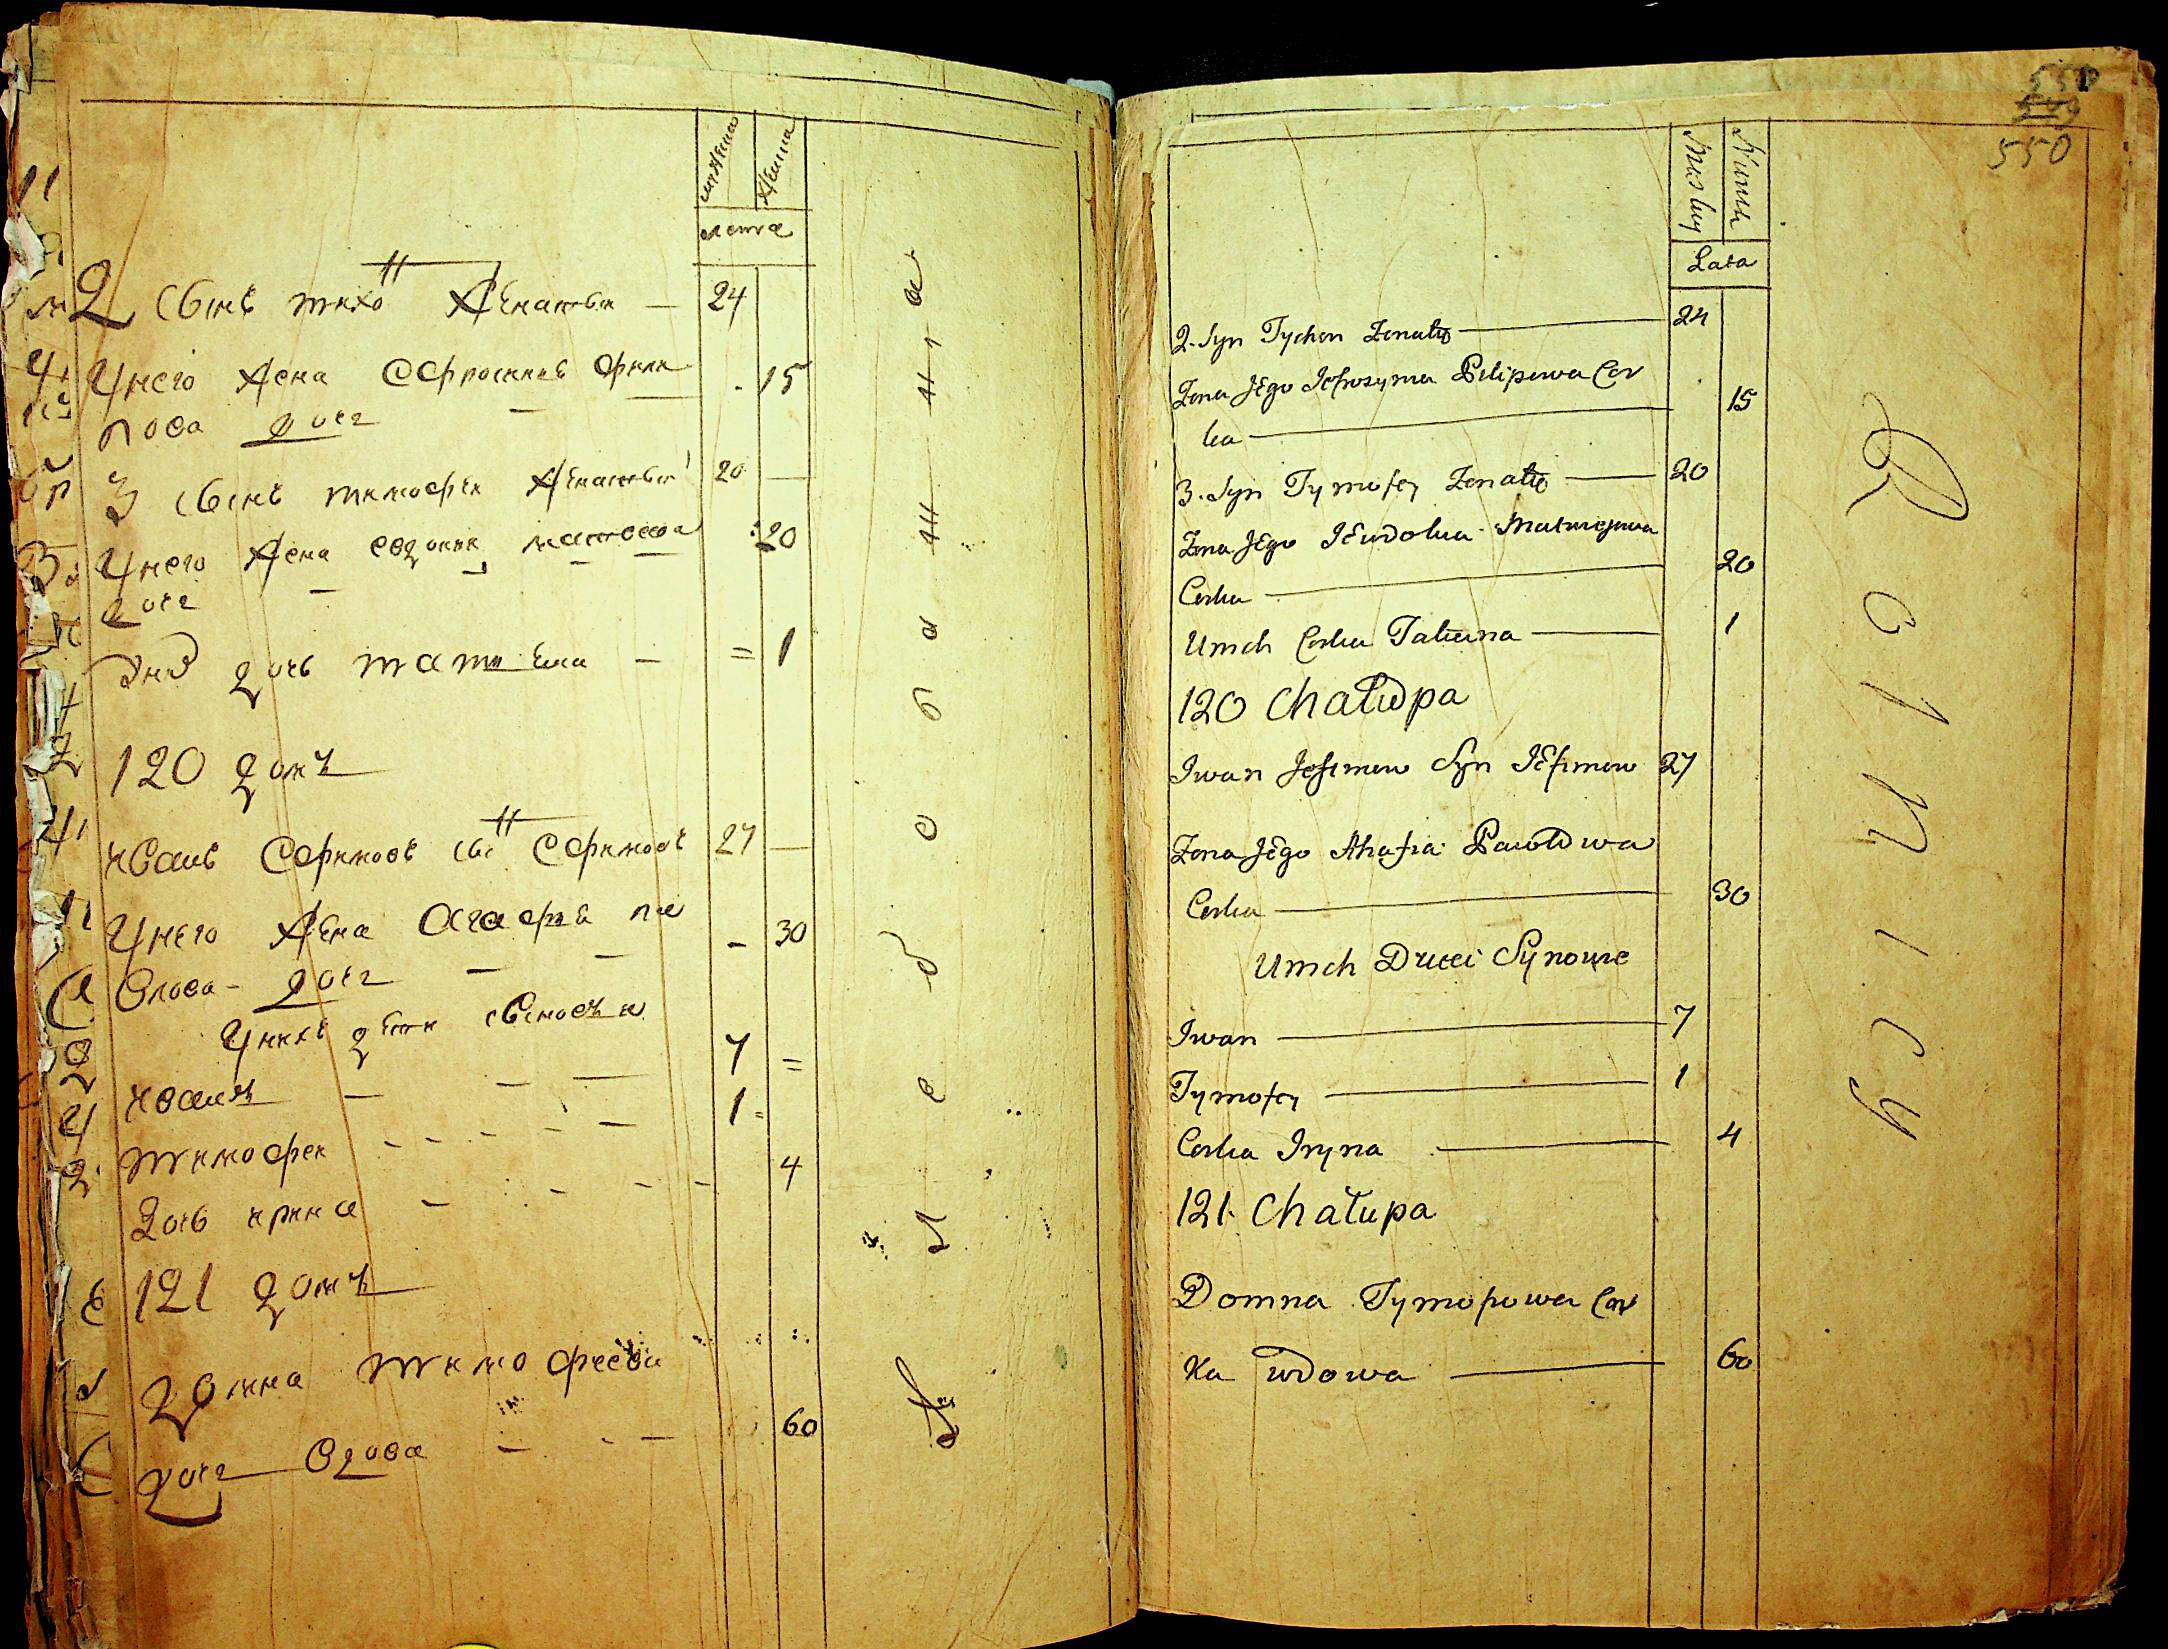 мужеска
женска
лета
2 сынъ тихо н женатый 24
У него жена Ефросиния фили 15
пова дочь
3 сынъ тимофей женатый 20
У него жена Евдокия матвеева 20
дочь
дочь татияна 1
120 домъ
иванъ Ефимовъ сы н Ефимовъ 27
У него жена Агафия па 30
влова дочь
У нихъ дети сыновья
иванъ 7
тимофей 1
дочь ирина 4
121 домъ
домна тимофеева
дочь вдова 60
550
550
Męskey
Lata
2. Syn Tychon Zonaty 24
Zona Jego Jefrosyma Pilipowa Cor 15
ka
3. Syn Tymofey Zonaty 20
Zona Jego Jewdokia Matwiejowa
Corka 20
Unich Corka Taticina 1
120 Chałupa
Iwan Jefimow Syn Jefimow 27
Zona Jego Ahafia Pawłowa
Corka 30
Unich Dzieci Synowie
Iwan 7
Tymofey 1
Corka Iryna 4
121. Chałupa
Domna Tymofiowa Cor
ka wdowa 60
Rolnicy